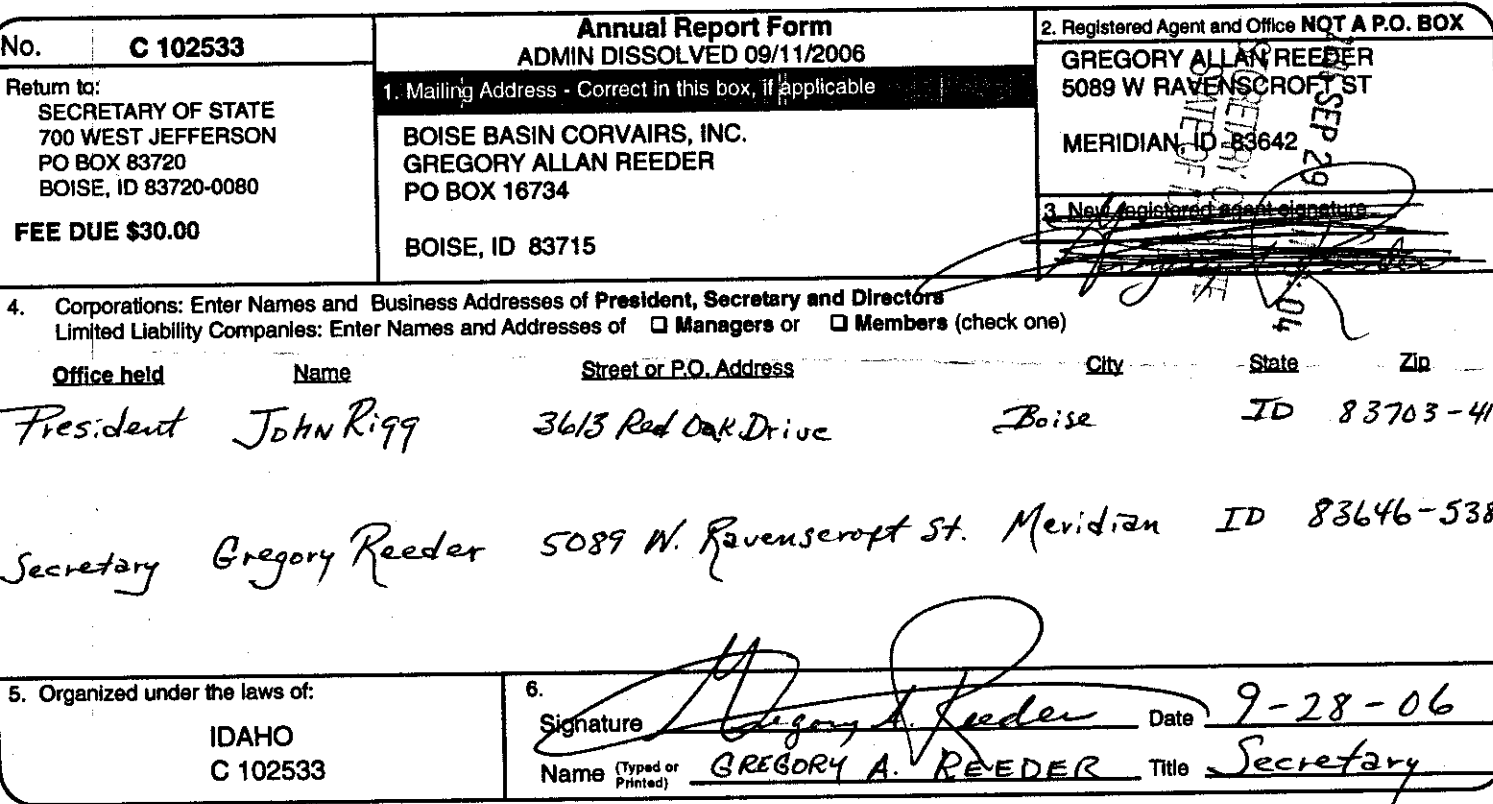 No. C 102533
Return to:
SECRETARY OF STATE
700 WEST JEFFERSON
PO BOX 83720
BOISE, ID 83720-0080
FEE DUE $30.00
Annual Report Form
ADMIN DISSOLVED 09/11/2006
1. Mailing Address - Correct in this box, if applicable
BOISE BASIN CORVAIRS, INC.
GREGORY ALLAN REEDER
PO BOX 16734
BOISE, ID 83715
2. Registered Agent and Office NOT A P.O. BOX
GREGORY ALLAN REEDER
5089 W RAVENSCROFT ST
MERIDIAN, ID 83642
SEP 29
04
3. New registered agent signature
4. Corporations: Enter Names and Business Addresses of President, Secretary and Directors
Limited Liability Companies: Enter Names and Addresses of ❑ Managers or ❑ Members (check one)
Office held Name Street or P.O. Address City State Zip
President John Rigg 3613 Red Oak Drive Boise ID 83703-41
Secretary Gregory Reeder 5089 W. Ravenscroft St. Meridian ID 83646-538
5. Organized under the laws of:
IDAHO
C 102533
6.
Signature Gregory A. Reeder Date 9-28-06
Name (Typed or Printed) GREGORY A. REEDER Title Secretary